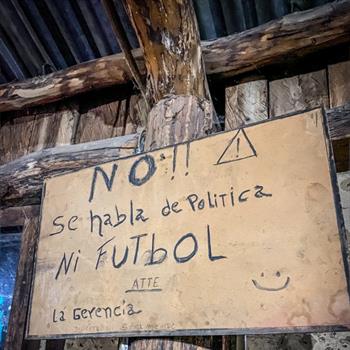 NO!!
Se habla de POLITICA
Ni FUTbOL
ATTE
LA Gerencia